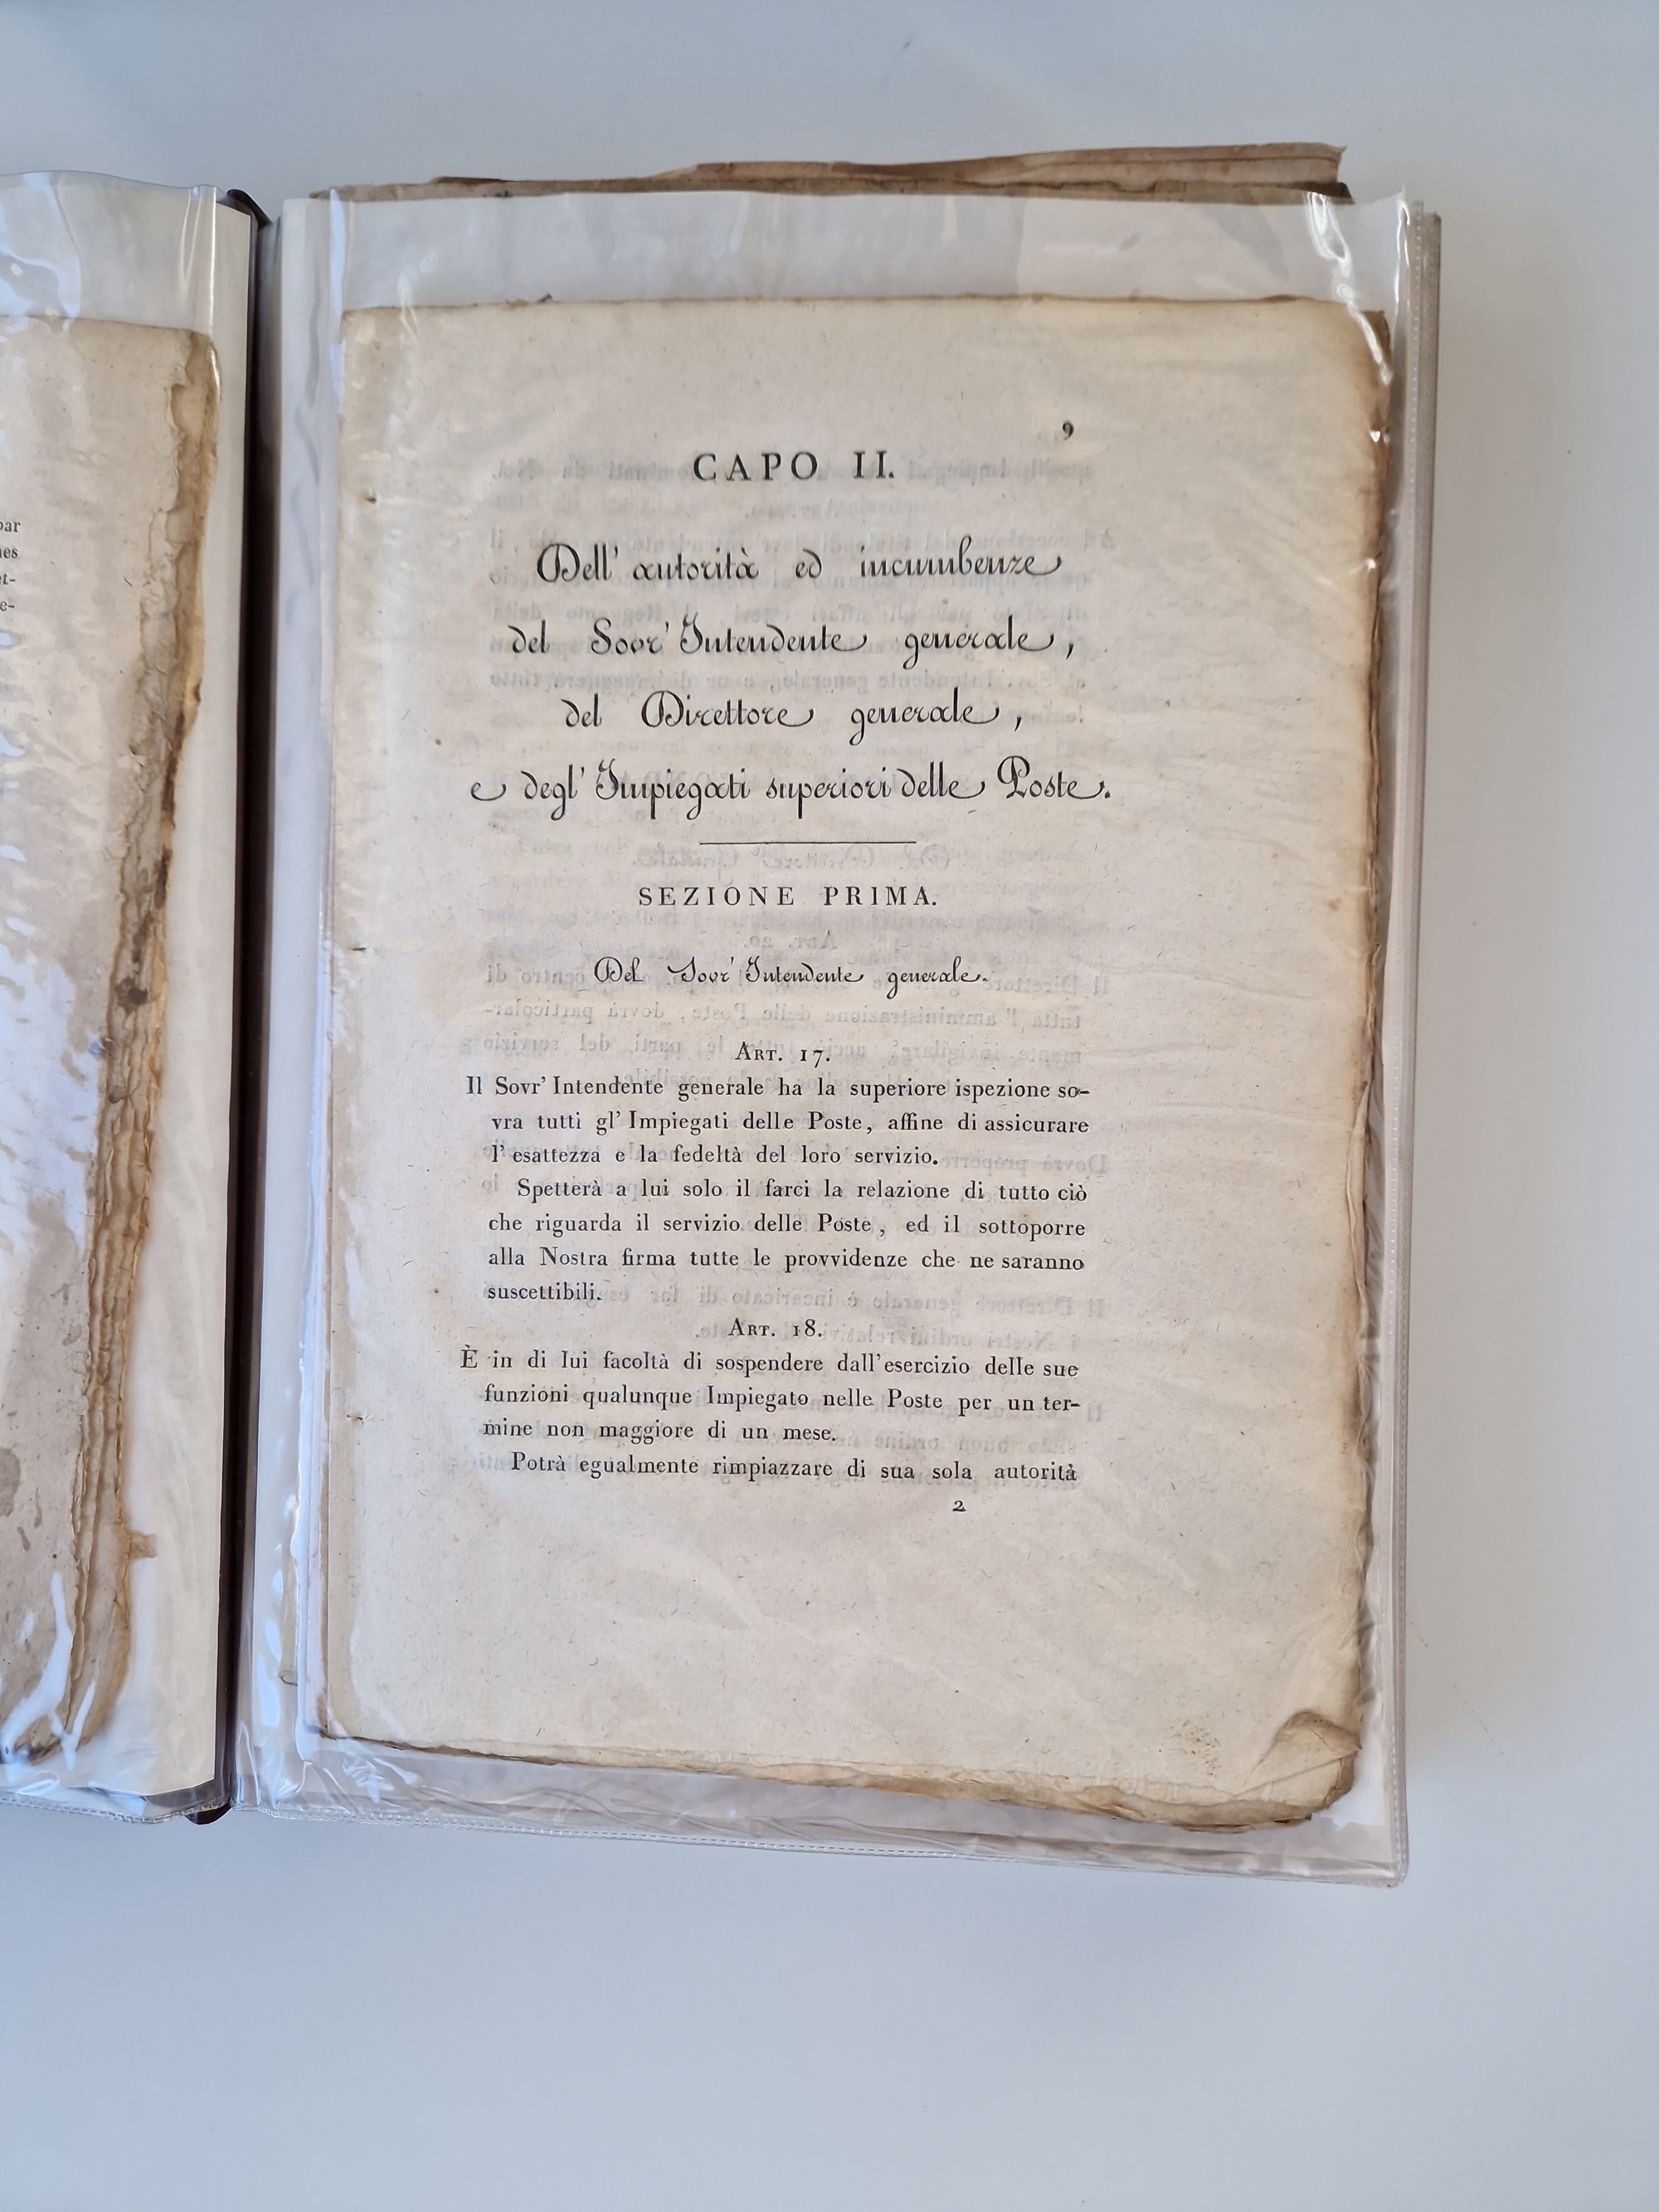 par
nes
et-
e-
9
CAPO II.
Dell' autorità ed incumbenze
del Sovr' Intendente generale,
del Direttore generale,
e degl' Impiegati superiori delle Poste.
SEZIONE PRIMA.
Del Sovr' Intendente generale.
ART. 17.
Il Sovr' Intendente generale ha la superiore ispezione so-
vra tutti gl' Impiegati delle Poste, affine di assicurare
l' esattezza e la fedeltà del loro servizio.
Spetterà a lui solo il farci la relazione di tutto ciò
che riguarda il servizio delle Poste, ed il sottoporre
alla Nostra firma tutte le provvidenze che ne saranno
suscettibili.
ART. 18.
È in di lui facoltà di sospendere dall'esercizio delle sue
funzioni qualunque Impiegato nelle Poste per un ter-
mine non maggiore di un mese.
Potrà egualmente rimpiazzare di sua sola autorità
2